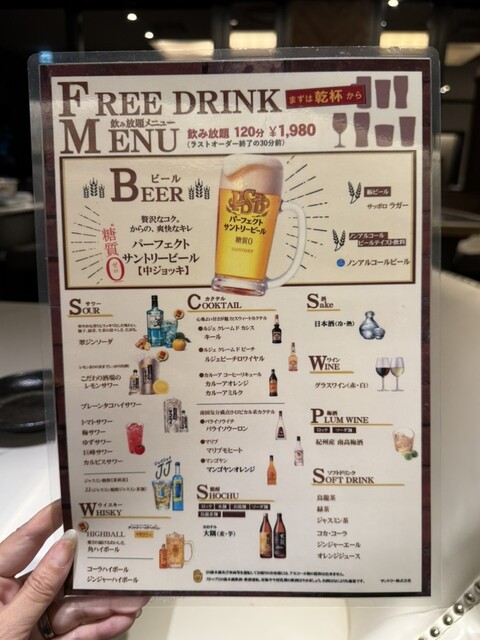 FREE DRINK
まずは乾杯から
飲み放題メニュー
MENU
飲み放題 120分 ¥1,980
(ラストオーダー終了の30分前)
ビール
BEER
贅沢なコク。
からの、爽快なキレ
糖質0
パーフェクト
サントリービール
【中ジョッキ】
PSB
パーフェクト
サントリービール
糖質0
SUNTORY
瓶ビール
サッポロ ラガー
ノンアルコール
ビールテイスト飲料
ノンアルコールビール
サワー
SOUR
翠ジンソーダ
こだわり酒場の
レモンサワー
プレーンタコハイサワー
トマトサワー
梅サワー
ゆずサワー
巨峰サワー
カルピスサワー
ジャスミン焼酎【茉莉花】
JJ(ジャスミン焼酎ジャスミン茶割)
JJ
ウイスキー
WHISKY
HIGHBALL
角ハイボール
コーラハイボール
ジンジャーハイボール
カクテル
COOKTAIL
●ルジェ クレーム ド カシス
キール
●ルジェ クレーム ド ピーチ
ルジェピーチロワイヤル
●カルーア コーヒーリキュール
カルーアオレンジ
カルーアミルク
●パライソ ライチ
パライソウーロン
●マリブ
マリブモヒート
●マンゴヤン
マンゴヤンオレンジ
焼酎
SHOCHU
ロック 水割 お湯割 ソーダ割
烏龍茶割
大隅(麦・芋)
酒
SAKE
日本酒(冷・熱)
ワイン
WINE
グラスワイン(赤・白)
梅酒
PLUM WINE
ロック ソーダ割
紀州産 南高梅酒
ソフトドリンク
SOFT DRINK
烏龍茶
緑茶
ジャスミン茶
コカ・コーラ
ジンジャーエール
オレンジジュース
サントリー株式会社